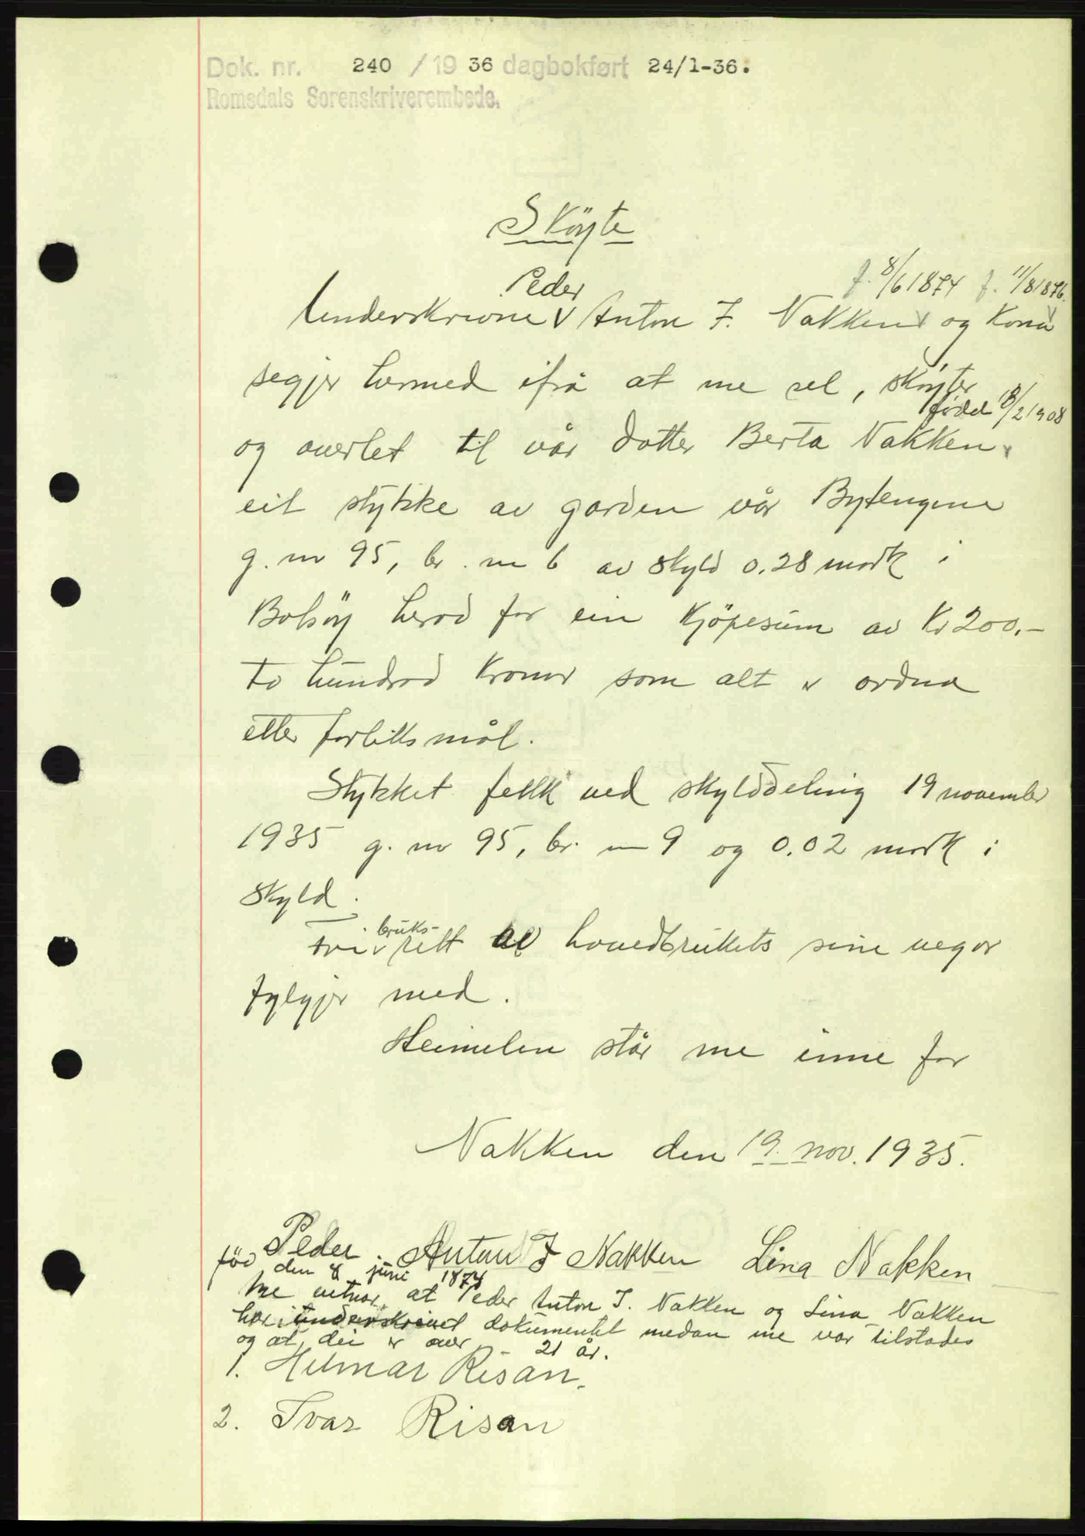 Dok. nr. 240 / 19 36 dagbokført 24/1-36.
Romsdals Sorenskriverembede.
Sköyte
Peder f. 8/6 1874 f. 11/8 1876.
Underskrivne V Anton J. Nakken V og Kona V
segjer hermed ifrå at me sel, sköyter
født 18/2 1908
og overlet til vår dotter Berta Nakken V
eit stykke av garden vår Bytengene
g. nr 95, br. nr 6 av skyld 0.28 mork i
Bolsöy herod for ein Kjöpesum av Kr 200.-
to hundrad Kroner som alt er ordna
etter forliksmål.
Stykket fekk ved skylddeling 19 november
1935 g. nr 95, br. nr 9 og 0.02 mork i
skyld.
bruks-
Fri V rett av hovedbrukets sine vegar
fylgjer med.
Heimelen står me inne for
Nakken den 19. nov. 1935.
Peder Anton J Nakken Lina Nakken
fød den 8 juni 1874
Me vitnar at Peder Anton J. Nakken og Lina Nakken
har underskrivet dokumentet medan me var tilstades
og at dei er over 21 år.
1. Hilmar Risan.
2. Ivar Risan